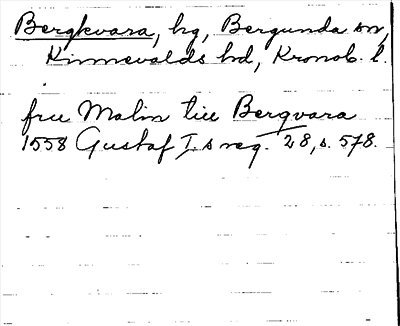 Bergkvara, hg, Bergunda sn,
Kinnevalds hd, Kronob. l.
fru Malin till Bergvara
1558 Gustaf I.s reg. 28, s. 578.